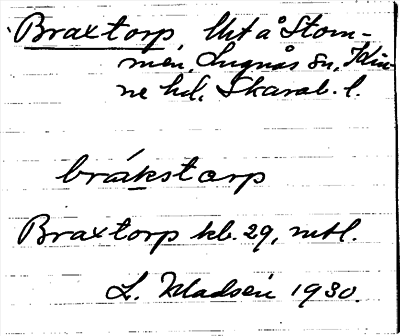 Braxtorp lht å Stom-
men, Lugnås sn, Kin-
ne hd, Skarab. l.
brákstorp
Braxtorp kb. 29, mtl.
1930.